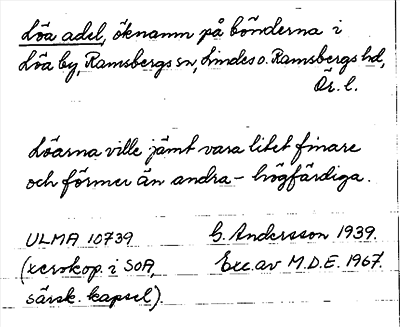 Löa adel, öknamn på bönderna i
Löa by, Ramsbergs sn, Lindes o. Ramsbergs hd,
Ör. l.
Löarna ville jämt vara litet finare
och förmer än andra – högfärdiga.
ULMA 10739 G. Andersson 1939.
(xerokop. i SOA, Exc. av M.D.E. 1967.
särsk. kapsel).